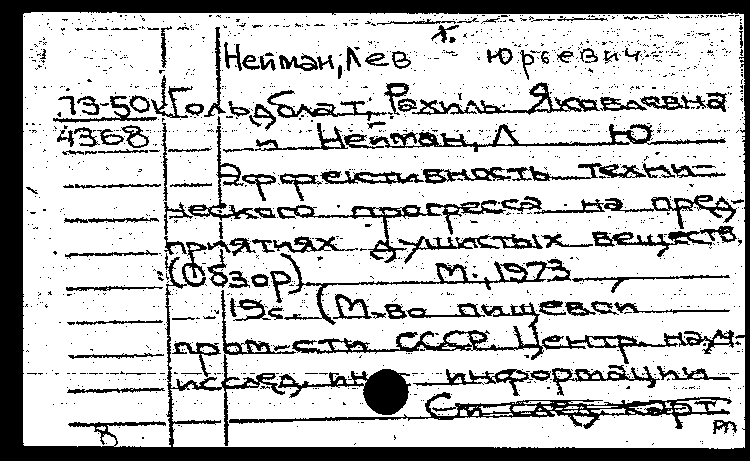 т.
Нейман, Лев Юрьевич
73-50к Гольдблат, Рахиль Яковлевна
4368 и Нейман, Л Ю
Эффективность техни-
ческого прогресса на пред-
приятиях душистых веществ.
(Обзор) М., 1973
19с. (М-во пищевой
пром-сти СССР. Центр. науч-
исслед. ин- информации
См след. карт.
8